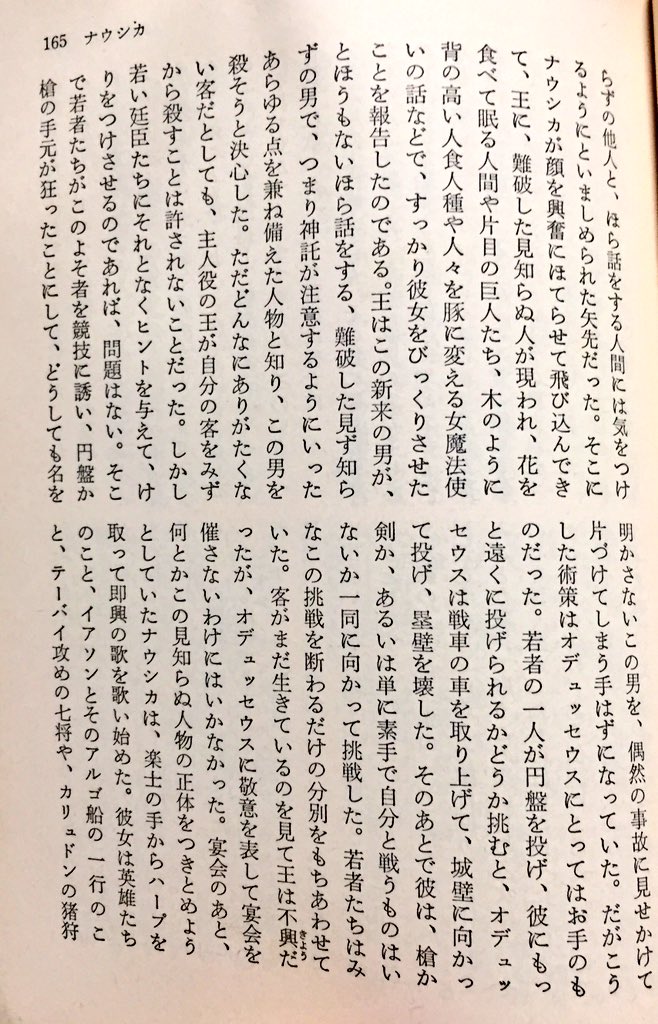 165 ナウシカ
らずの他人と、ほら話をする人間には気をつけ
るようにといましめられた矢先だった。そこに
ナウシカが顔を興奮にほてらせて飛び込んでき
て、王に、難破した見知らぬ人が現われ、花を
食べて眠る人間や片目の巨人たち、木のように
背の高い人食人種や人々を豚に変える女魔法使
いの話などで、すっかり彼女をびっくりさせた
ことを報告したのである。王はこの新来の男が、
とほうもないほら話をする、難破した見ず知ら
ずの男で、つまり神託が注意するようにいった
あらゆる点を兼ね備えた人物と知り、この男を
殺そうと決心した。ただどんなにありがたくな
い客だとしても、主人役の王が自分の客をみず
から殺すことは許されないことだった。しかし
若い廷臣たちにそれとなくヒントを与えて、け
りをつけさせるのであれば、問題はない。そこ
で若者たちがこのよそ者を競技に誘い、円盤か
槍の手元が狂ったことにして、どうしても名を
明かさないこの男を、偶然の事故に見せかけて
片づけてしまう手はずになっていた。だがこう
した術策はオデュッセウスにとってはお手のも
のだった。若者の一人が円盤を投げ、彼にもっ
と遠くに投げられるかどうか挑むと、オデュッ
セウスは戦車の車を取り上げて、城壁に向かっ
て投げ、塁壁を壊した。そのあとで彼は、槍か
剣か、あるいは単に素手で自分と戦うものはい
ないか一同に向かって挑戦した。若者たちはみ
なこの挑戦を断わるだけの分別をもちあわせて
いた。客がまだ生きているのを見て王は不興きようだ
ったが、オデュッセウスに敬意を表して宴会を
催さないわけにはいかなかった。宴会のあと、
何とかこの見知らぬ人物の正体をつきとめよう
としていたナウシカは、楽士の手からハープを
取って即興の歌を歌い始めた。彼女は英雄たち
のこと、イアソンとそのアルゴ船の一行のこ
と、テーバイ攻めの七将や、カリュドンの猪狩